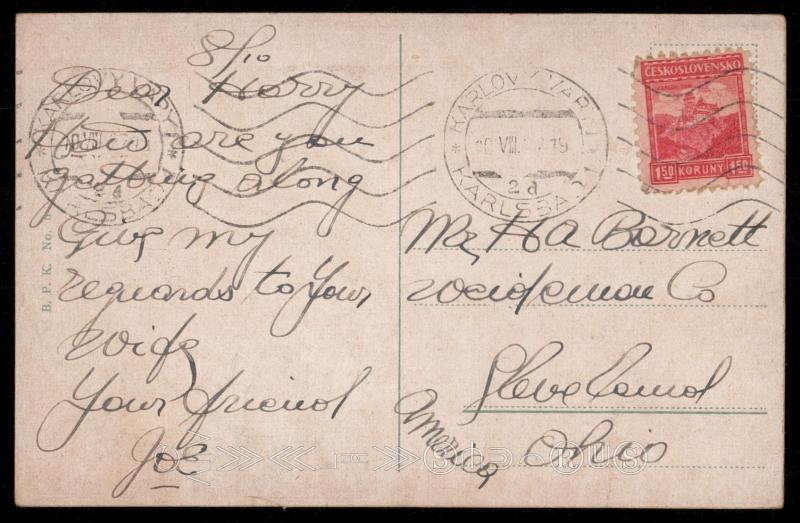 8/10
Dear Harry
How are you
getting along
Give my
reguards to Your
wife
Your friend
Joe
B. P. K. No.
KARLOVY VARY
KARLSBAD
2d
KARLOVY VARY
VIII.
KARLSBAD
2d
ČESKOSLOVENSKO
1.50 KORUNY 1.50
Mr H A Barnett
Weideman Co
Cleveland
Ohio
America